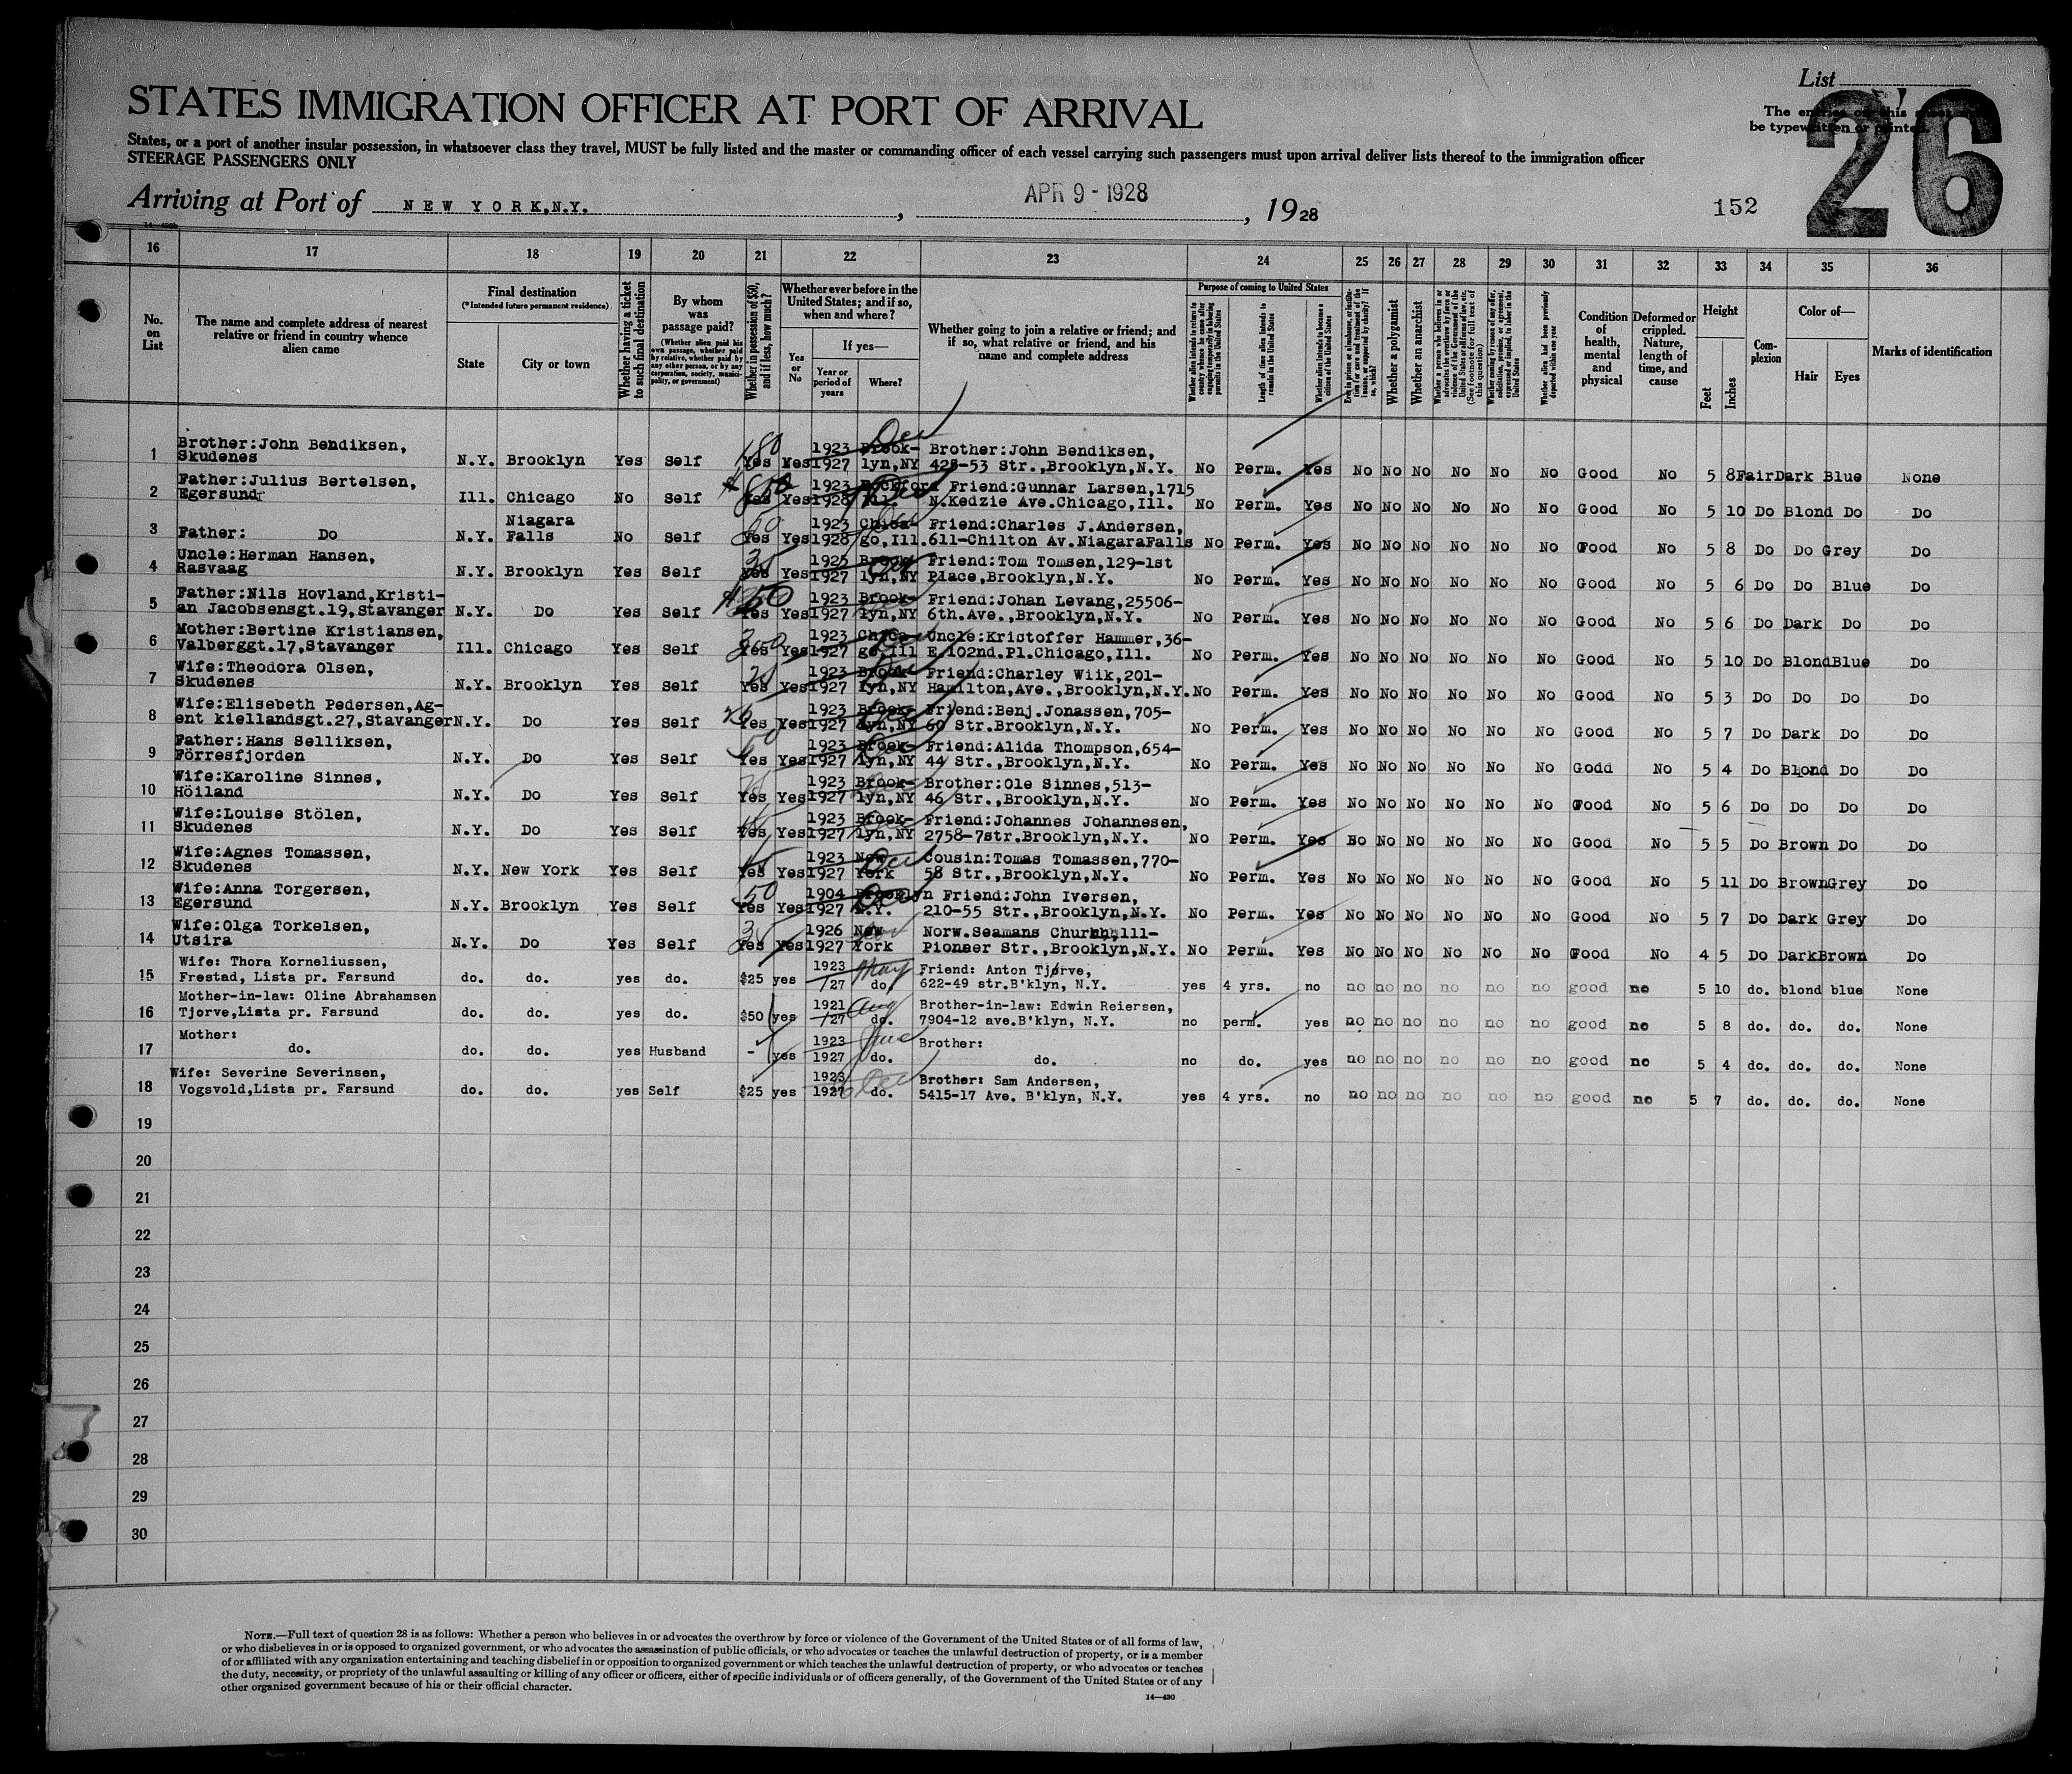 List
The entries on this sheet must
be typewritten or printed.
26
STATES IMMIGRATION OFFICER AT PORT OF ARRIVAL
States, or a port of another insular possession, in whatsoever class they travel, MUST be fully listed and the master or commanding officer of each vessel carrying such passengers must upon arrival deliver lists thereof to the immigration officer
STEERAGE PASSENGERS ONLY
Arriving at Port of NEW YORK,N.Y. , APR 9 - 1928 , 1928 152
16 17 18 19 20 21 22 23 24 25 26 27 28 29 30 31 32 33 34 35 36
No. on List
The name and complete address of nearest relative or friend in country whence alien came
Final destination
(*Intended future permanent residence)
State
City or town
Whether having a ticket to such final destination
By whom was passage paid?
(Whether alien paid his own passage, whether paid by relative, whether paid by any other person, or by any corporation, society, municipality, or government)
Whether in possession of $50, and if less, how much?
Whether ever before in the United States; and if so, when and where?
Yes or No
If yes—
Year or period of years
Where?
Whether going to join a relative or friend; and if so, what relative or friend, and his name and complete address
Purpose of coming to United States
Whether alien intends to return to country whence he came after engaging temporarily in laboring pursuits in the United States
Length of time alien intends to remain in the United States
Whether alien intends to become a citizen of the United States
Ever in prison or almshouse, or institution for care and treatment of the insane, or supported by charity? If so, which?
Whether a polygamist
Whether an anarchist
Whether a person who believes in or advocates the overthrow by force or violence of the Government of the United States or all forms of law, etc. (See footnote for full text of this question)
Whether coming by reason of any offer, solicitation, promise, or agreement, expressed or implied, to labor in the United States
Whether alien had been previously deported within one year
Condition of health, mental and physical
Deformed or crippled. Nature, length of time, and cause
Height
Feet
Inches
Complexion
Color of—
Hair
Eyes
Marks of identification
1 Brother:John Bendiksen, Skudenes N.Y. Brooklyn Yes Self 180 Yes Yes 1923 1927 Brooklyn,NY Dec Brother:John Bendiksen, 425-53 Str.,Brooklyn,N.Y. No Perm. Yes No No No No No No Good No 5 8 Fair Dark Blue None
2 Father:Julius Bertelsen, Egersund Ill. Chicago No Self Yes Yes 1923 1928 Rockford Ill. Friend:Gunnar Larsen,1715 N.Kedzie Ave.Chicago,Ill. No Perm. Yes No No No No No No Good No 5 10 Do Blond Do Do
3 Father: Do N.Y. Niagara Falls No Self Yes Yes 1923 1928 Chicago,Ill. Friend:Charles J.Andersen, 611-Chilton Av.NiagaraFalls No Perm. Yes No No No No No No Food No 5 8 Do Do Grey Do
4 Uncle:Herman Hansen, Rasvaag N.Y. Brooklyn Yes Self 35 Yes Yes 1925 1927 Brooklyn,NY Friend:Tom Tomsen,129-1st Place,Brooklyn,N.Y. No Perm. Yes No No No No No No Good No 5 6 Do Do Blue Do
5 Father:Nils Hovland,Kristian Jacobsensgt.19,Stavanger N.Y. Do Yes Self Yes Yes 1923 1927 Brooklyn,NY Friend:Johan Levang,25506-6th.Ave.,Brooklyn,N.Y. No Perm. Yes No No No No No No Good No 5 6 Do Dark Do Do
6 Mother:Bertine Kristiansen, Valberggt.17,Stavanger Ill. Chicago Yes Self 300 Yes Yes 1923 1927 Chicago,Ill Uncle:Kristoffer Hammer,36-E.102nd.Pl.Chicago,Ill. No Perm. Yes No No No No No No Good No 5 10 Do Blond Blue Do
7 Wife:Theodora Olsen, Skudenes N.Y. Brooklyn Yes Self Yes Yes 1923 1927 Brooklyn,NY Friend:Charley Wiik,201-Hamilton,Ave.,Brooklyn,N.Y. No Perm. Yes No No No No No No Good No 5 3 Do Do Do Do
8 Wife:Elisebeth Pedersen,Agent kiellandsgt.27,Stavanger N.Y. Do Yes Self Yes Yes 1923 1927 Brooklyn,NY Friend:Benj.Jonassen,705-60 Str.Brooklyn,N.Y. No Perm. Yes No No No No No No Good No 5 7 Do Dark Do Do
9 Father:Hans Selliksen, Förresfjorden N.Y. Do Yes Self Yes Yes 1923 1927 Brooklyn,NY Friend:Alida Thompson,654-44 Str.,Brooklyn,N.Y. No Perm. Yes No No No No No No Godd No 5 4 Do Blond Do Do
10 Wife:Karoline Sinnes, Höiland N.Y. Do Yes Self Yes Yes 1923 1927 Brooklyn,NY Brother:Ole Sinnes,513-46 Str.,Brooklyn,N.Y. No Perm. Yes No No No No No No Food No 5 6 Do Do Do Do
11 Wife:Louise Stölen, Skudenes N.Y. Do Yes Self Yes Yes 1923 1927 Brooklyn,NY Friend:Johannes Johannesen, 2758-7str.Brooklyn,N.Y. No Perm. Yes No No No No No No Good No 5 5 Do Brown Do Do
12 Wife:Agnes Tomassen, Skudenes N.Y. New York Yes Self Yes Yes 1923 1927 New York Dec Cousin:Tomas Tomassen,770-58 Str.,Brooklyn,N.Y. No Perm. Yes No No No No No No Good No 5 11 Do Brown Grey Do
13 Wife:Anna Torgersen, Egersund N.Y. Brooklyn Yes Self 50 Yes Yes 1904 1927 Brooklyn N.Y. Dec Friend:John Iversen, 210-55 Str.,Brooklyn,N.Y. No Perm. Yes No No No No No No Good No 5 7 Do Dark Grey Do
14 Wife:Olga Torkelsen, Utsira N.Y. Do Yes Self Yes Yes 1926 1927 New York Norw.Seamans Church,111-Pioneer Str.,Brooklyn,N.Y. No Perm. Yes No No No No No No Food No 4 5 Do Dark Brown Do
15 Wife: Thora Korneliussen, Frestad, Lista pr. Farsund do. do. yes do. $25 yes 1923 /27 May do. Friend: Anton Tjørve, 622-49 str.B'klyn, N.Y. yes 4 yrs. no no no no no no no good no 5 10 do. blond blue None
16 Mother-in-law: Oline Abrahamsen Tjorve,Lista pr. Farsund do. do. yes do. $50 yes 1921 /27 Aug do. Brother-in-law: Edwin Reiersen, 7904-12 ave.B'klyn, N.Y. no perm. yes no no no no no no good no 5 8 do. do. do. None
17 Mother: do. do. do. yes Husband - yes 1923 1927 June do. Brother: do. no do. yes no no no no no no good no 5 4 do. do. do. None
18 Wife: Severine Severinsen, Vogsvold,Lista pr. Farsund do. do. yes Self $25 yes 1923 1927 Dec do. Brother: Sam Andersen, 5415-17 Ave. B'klyn, N.Y. yes 4 yrs. no no no no no no no good no 5 7 do. do. do. None
19
20
21
22
23
24
25
26
27
28
29
30
NOTE.—Full text of question 28 is as follows: Whether a person who believes in or advocates the overthrow by force or violence of the Government of the United States or of all forms of law,
or who disbelieves in or is opposed to organized government, or who advocates the assassination of public officials, or who advocates or teaches the unlawful destruction of property, or is a member
of or affiliated with any organization entertaining and teaching disbelief in or opposition to organized government or which teaches the unlawful destruction of property, or who advocates or teaches
the duty, necessity, or propriety of the unlawful assaulting or killing of any officer or officers, either of specific individuals or of officers generally, of the Government of the United States or of any
other organized government because of his or their official character.
14—430